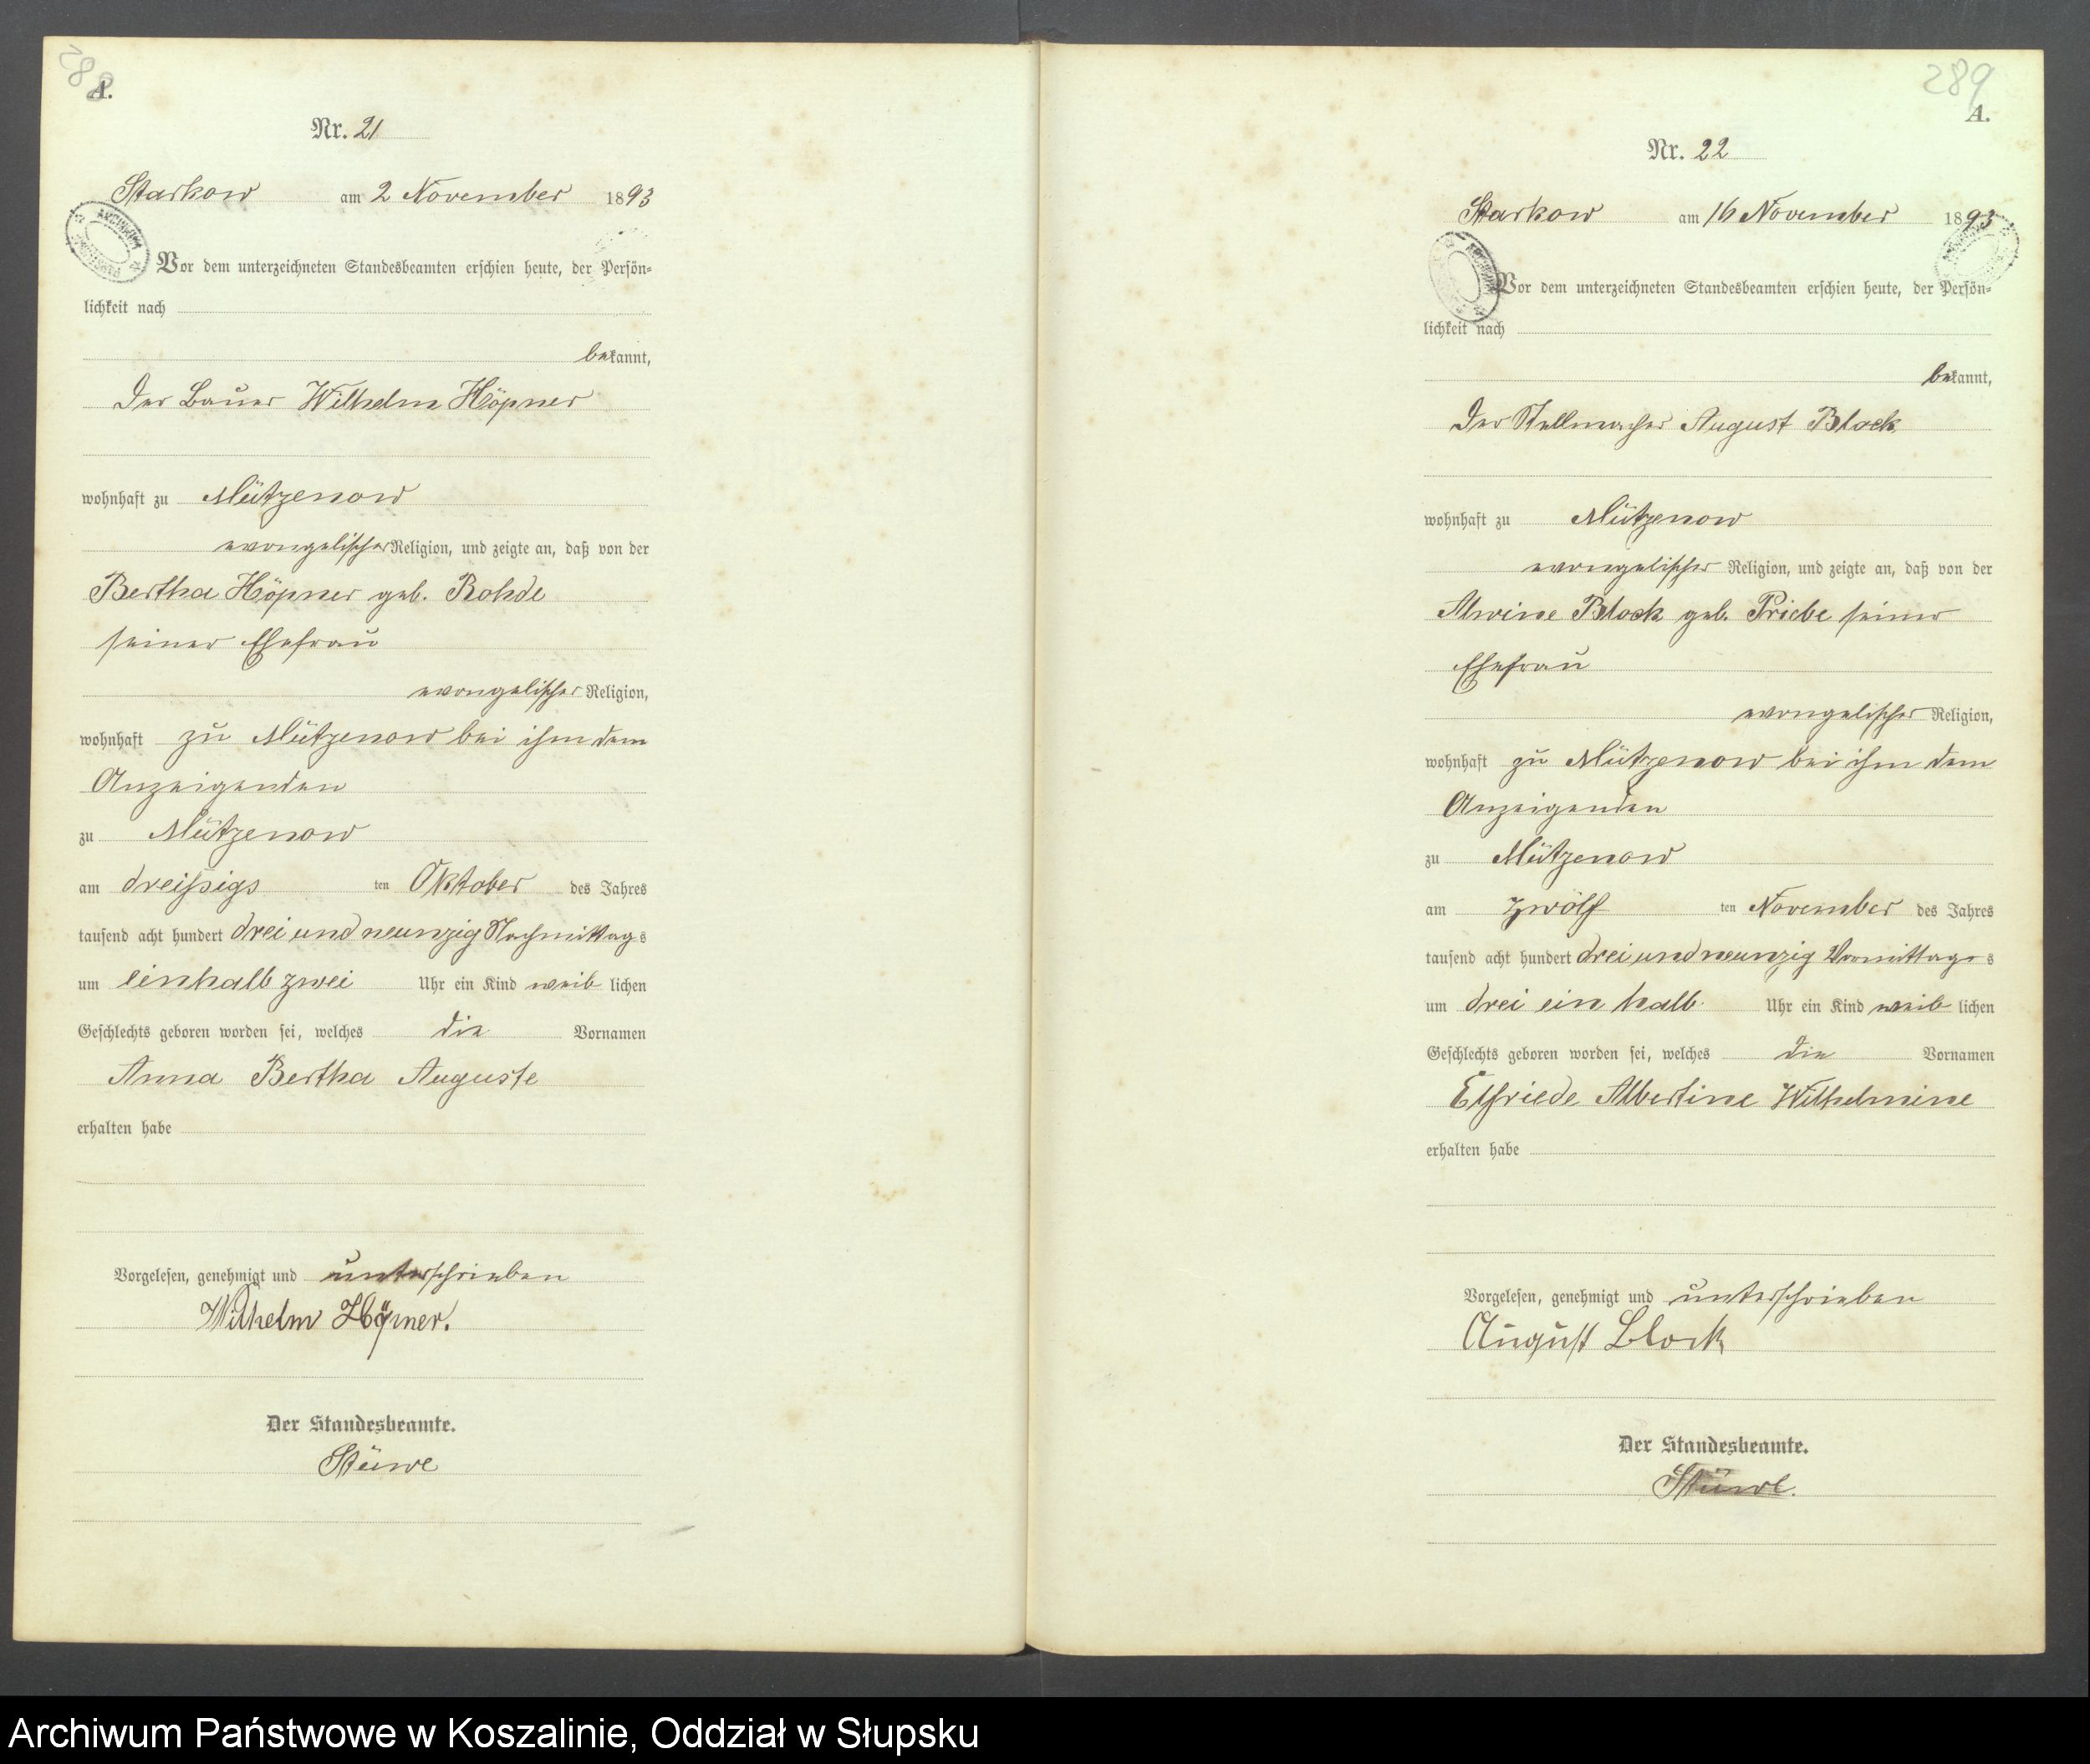 288
A.
Nr. 21
Starkow am 2 November 1893
Vor dem unterzeichneten Standesbeamten erschien heute, der Persön-
lichkeit nach
bekannt,
der Bauer Wilhelm Höpner
wohnhaft zu Mützenow
evangelischer Religion, und zeigte an, daß von der
Bertha Höpner geb. Rohde
seiner Ehefrau
evangelischer Religion,
wohnhaft zu Mützenow bei ihm dem
Anzeigenden
zu Mützenow
am dreißigs ten Oktober des Jahres
tausend acht hundert drei und neunzig Nachmittags
um einhalb zwei Uhr ein Kind weib lichen
Geschlechts geboren worden sei, welches die Vornamen
Anna Bertha Auguste
erhalten habe
Vorgelesen, genehmigt und unterschrieben
Wilhelm Höpner.
Der Standesbeamte.
Stüwe
289
A.
Nr. 22
Starkow am 16 November 1893
Vor dem unterzeichneten Standesbeamten erschien heute, der Persön-
lichkeit nach
bekannt,
der Stellmacher August Block
wohnhaft zu Mützenow
evangelischer Religion, und zeigte an, daß von der
Alwine Block geb. Priebe seiner
Ehefrau
evangelischer Religion,
wohnhaft zu Mützenow bei ihm dem
Anzeigenden
zu Mützenow
am zwölf ten November des Jahres
tausend acht hundert drei und neunzig Vormittags
um drei ein halb Uhr ein Kind weib lichen
Geschlechts geboren worden sei, welches die Vornamen
Elfriede Albertine Wilhelmine
erhalten habe
Vorgelesen, genehmigt und unterschrieben
August Block
Der Standesbeamte.
Stüwe.
Archiwum Państwowe w Koszalinie, Oddział w Słupsku